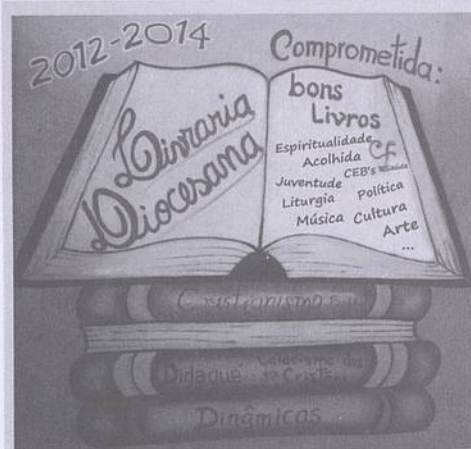 2012-2014
Comprometida:
Livraria
Diocesana
bons
Livros
Espiritualidade
Acolhida
CF
CEB's
Juventude
Liturgia
Política
Música
Cultura
Arte
...
Cristianismo
Didaqué
Catecismo dos
1ºs Cristãos
Dinâmicas